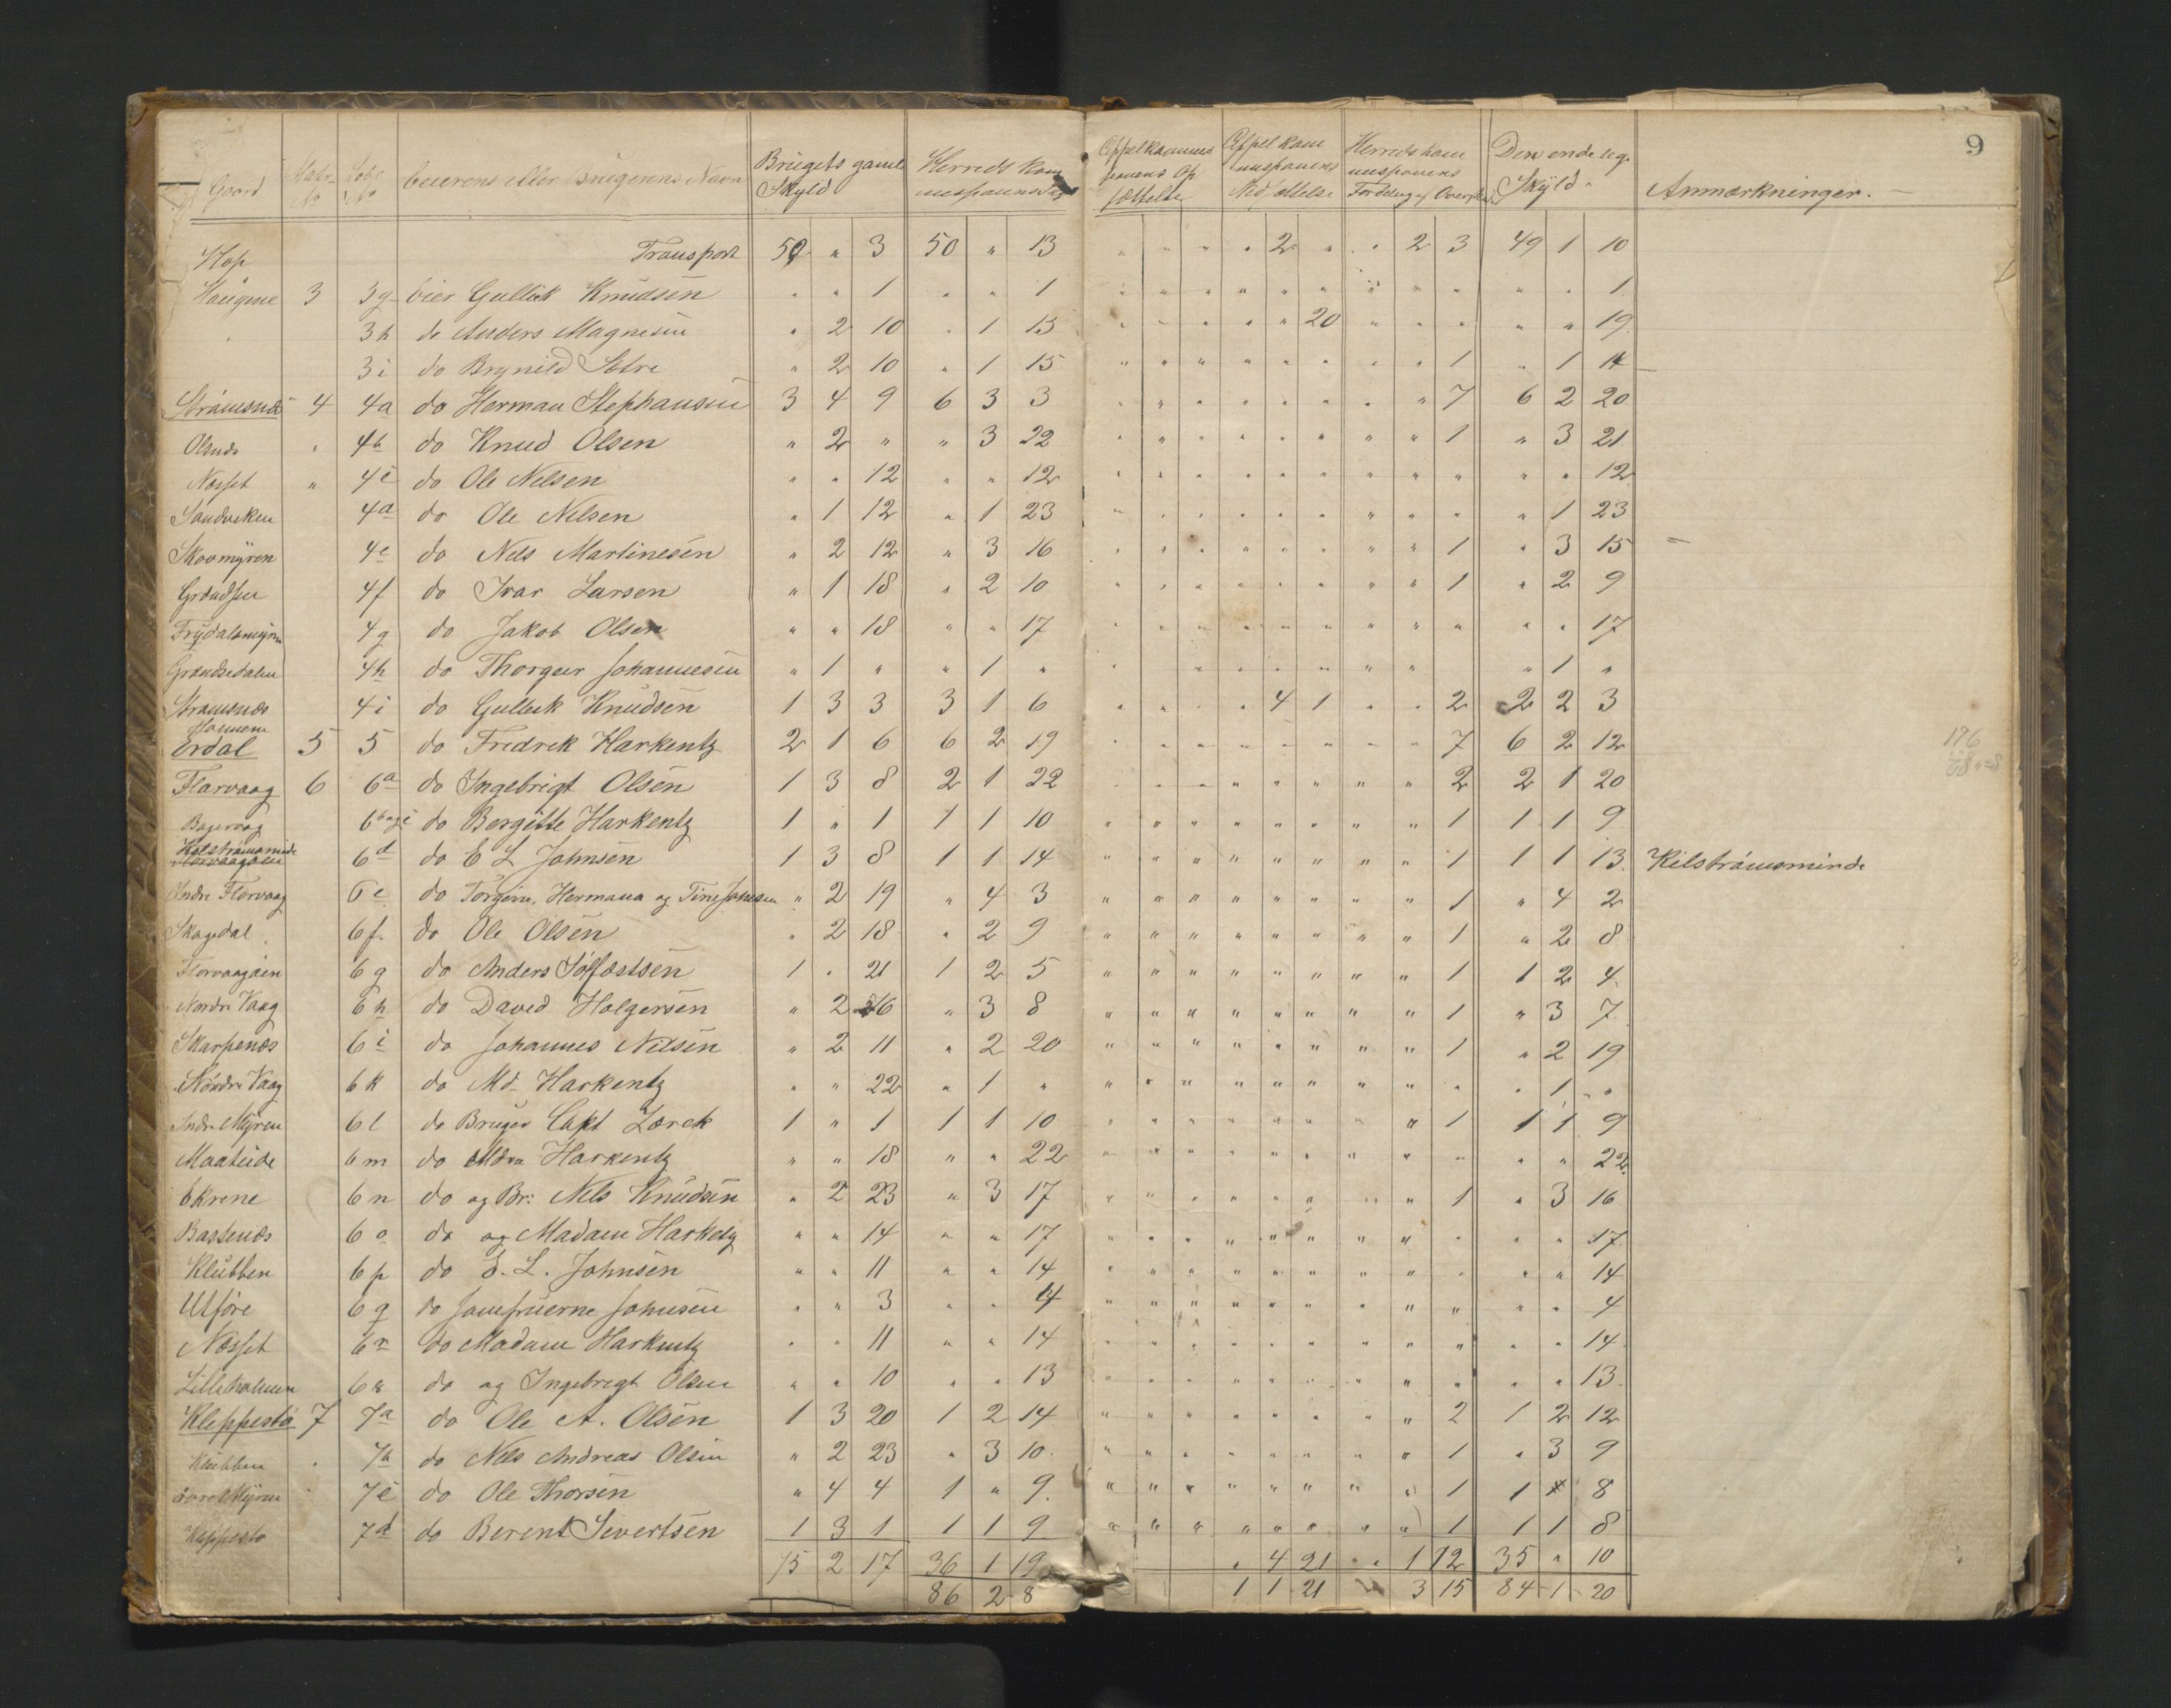 9
Gaard Matr. No Løbe No Eierens eller Brugerens Navn Brugets gamle Skyld Herredskom Appelkom Appelkom Nedsættelse Herredskom Den endelige Skyld Anmærkninger.
Hop Transport 50 " 3 50 " 13 " " " " 2 " " 2 3 49 1 10
Haugene 3 3g Eier Gullik Knudsen " " 1 " " 1 " " " " " " " " " " " 1
3h do Anders Magnesen " 2 10 " 1 15 " " " " " 20 " " " " " 19
3i do Brynild Setre " 2 10 " 1 15 " " " " " " " " 1 " 1 14
Strømsnæs 4 4a do Herman Stephansen 3 4 9 6 3 3 " " " " " " " " 7 6 2 20
Olsnæs " 4b do Knud Olsen " 2 " " 3 22 " " " " " " " " 1 " 3 21
Næsset " 4c do Ole Nelsen " " 12 " " 12 " " " " " " " " " " " 12
Sandviken 4d do Ole Nelsen " 1 12 " 1 23 " " " " " " " " " " 1 23
Skovmyren 4e do Nels Martinesen " 2 12 " 3 16 " " " " " " " " 1 " 3 15
Grændsen 4f do Ivar Larsen " 1 18 " 2 10 " " " " " " " " 1 " 2 9
Frydalsmyren 4g do Jakob Olsen " " 18 " " 17 " " " " " " " " " " " 17
Grændsedalen 4h do Thorgeir Johannesen " 1 " " 1 " " " " " " " " " " 1 "
Strømsnæs 4i do Gullik Knudsen 1 3 3 3 1 6 " " " " 4 1 " " 2 2 2 3
Holmene
Erdal 5 5 do Fredrik Harkentz 2 1 6 6 2 19 " " " " " " " " 7 6 2 12
Florvaag 6 6a do Ingebrigt Olsen 1 3 8 2 1 22 " " " " " " " " 2 2 1 20
Bagervaag 6b og c do Bergitte Harkentz 1 " 1 1 1 10 " " " " " " " " 1 1 1 9
Kilstrømsminde
Florvaagøen 6d do E L Johnsen 1 3 8 1 1 14 " " " " " " " " 1 1 1 13 Kilstrømsminde
Indre Florvaag 6e do Torgine, Hermana og Tine Johnsen " 2 19 " 4 3 " " " " " " " " 1 " 4 2
Skagedal 6f do Ole Olsen " 2 18 " 2 9 " " " " " " " " 1 " 2 8
Florvaagøen 6g do Anders Sølfæstsen 1 " 21 1 2 5 " " " " " " " " 1 1 2 4
Nordre Vaag 6h do David Holgersen " 2 16 " 3 8 " " " " " " " " 1 " 3 7
Skarpenæs 6i do Johannes Nilsen " 2 11 " 2 20 " " " " " " " " 1 " 2 19
Nordre Vaag 6k do Md. Harkentz " " 22 " 1 " " " " " " " " " " " 1 "
Indre Myren 6l do Bruger Capt Lærck 1 " 1 1 1 10 " " " " " " " " 1 1 1 9
Maaseide 6m do Mdm Harkentz " " 18 " " 22 " " " " " " " " " " " 22
Ekrene 6n do og Br: Nils Knudsen " 2 23 " 3 17 " " " " " " " " 1 " 3 16
Bassenæs 6o do og Madam Harketz " " 14 " " 17 " " " " " " " " " " " 17
Klubben 6p do E. L. Johnsen " " 11 " " 14 " " " " " " " " " " " 14
Utføre 6q do Jomfruerne Johnsen " " 3 " " 4 " " " " " " " " " " " 4
Næsset 6r do Madam Harkentz " " 11 " " 14 " " " " " " " " " " " 14
Lilleholmen 6s do og Ingebrigt Olsen " " 10 " " 13 " " " " " " " " " " " 13
Kleppestø 7 7a do Ole A. Olsen 1 3 20 1 2 14 " " " " " " " " 2 1 2 12
Klubben " 7b do Nels Andreas Olsen " 2 23 " 3 10 " " " " " " " " 1 " 3 9
Øvre Myren " 7c do Ole Thorsen " 4 4 1 " 9 " " " " " " " " 1 1 " 8
Kleppestø 7d do Berent Sivertsen 1 3 1 1 1 9 " " " " " " " " 1 1 1 8
75 2 17 36 1 19 " 4 21 " 1 12 35 " 10
86 2 8 1 1 21 " 3 15 84 1 20
176